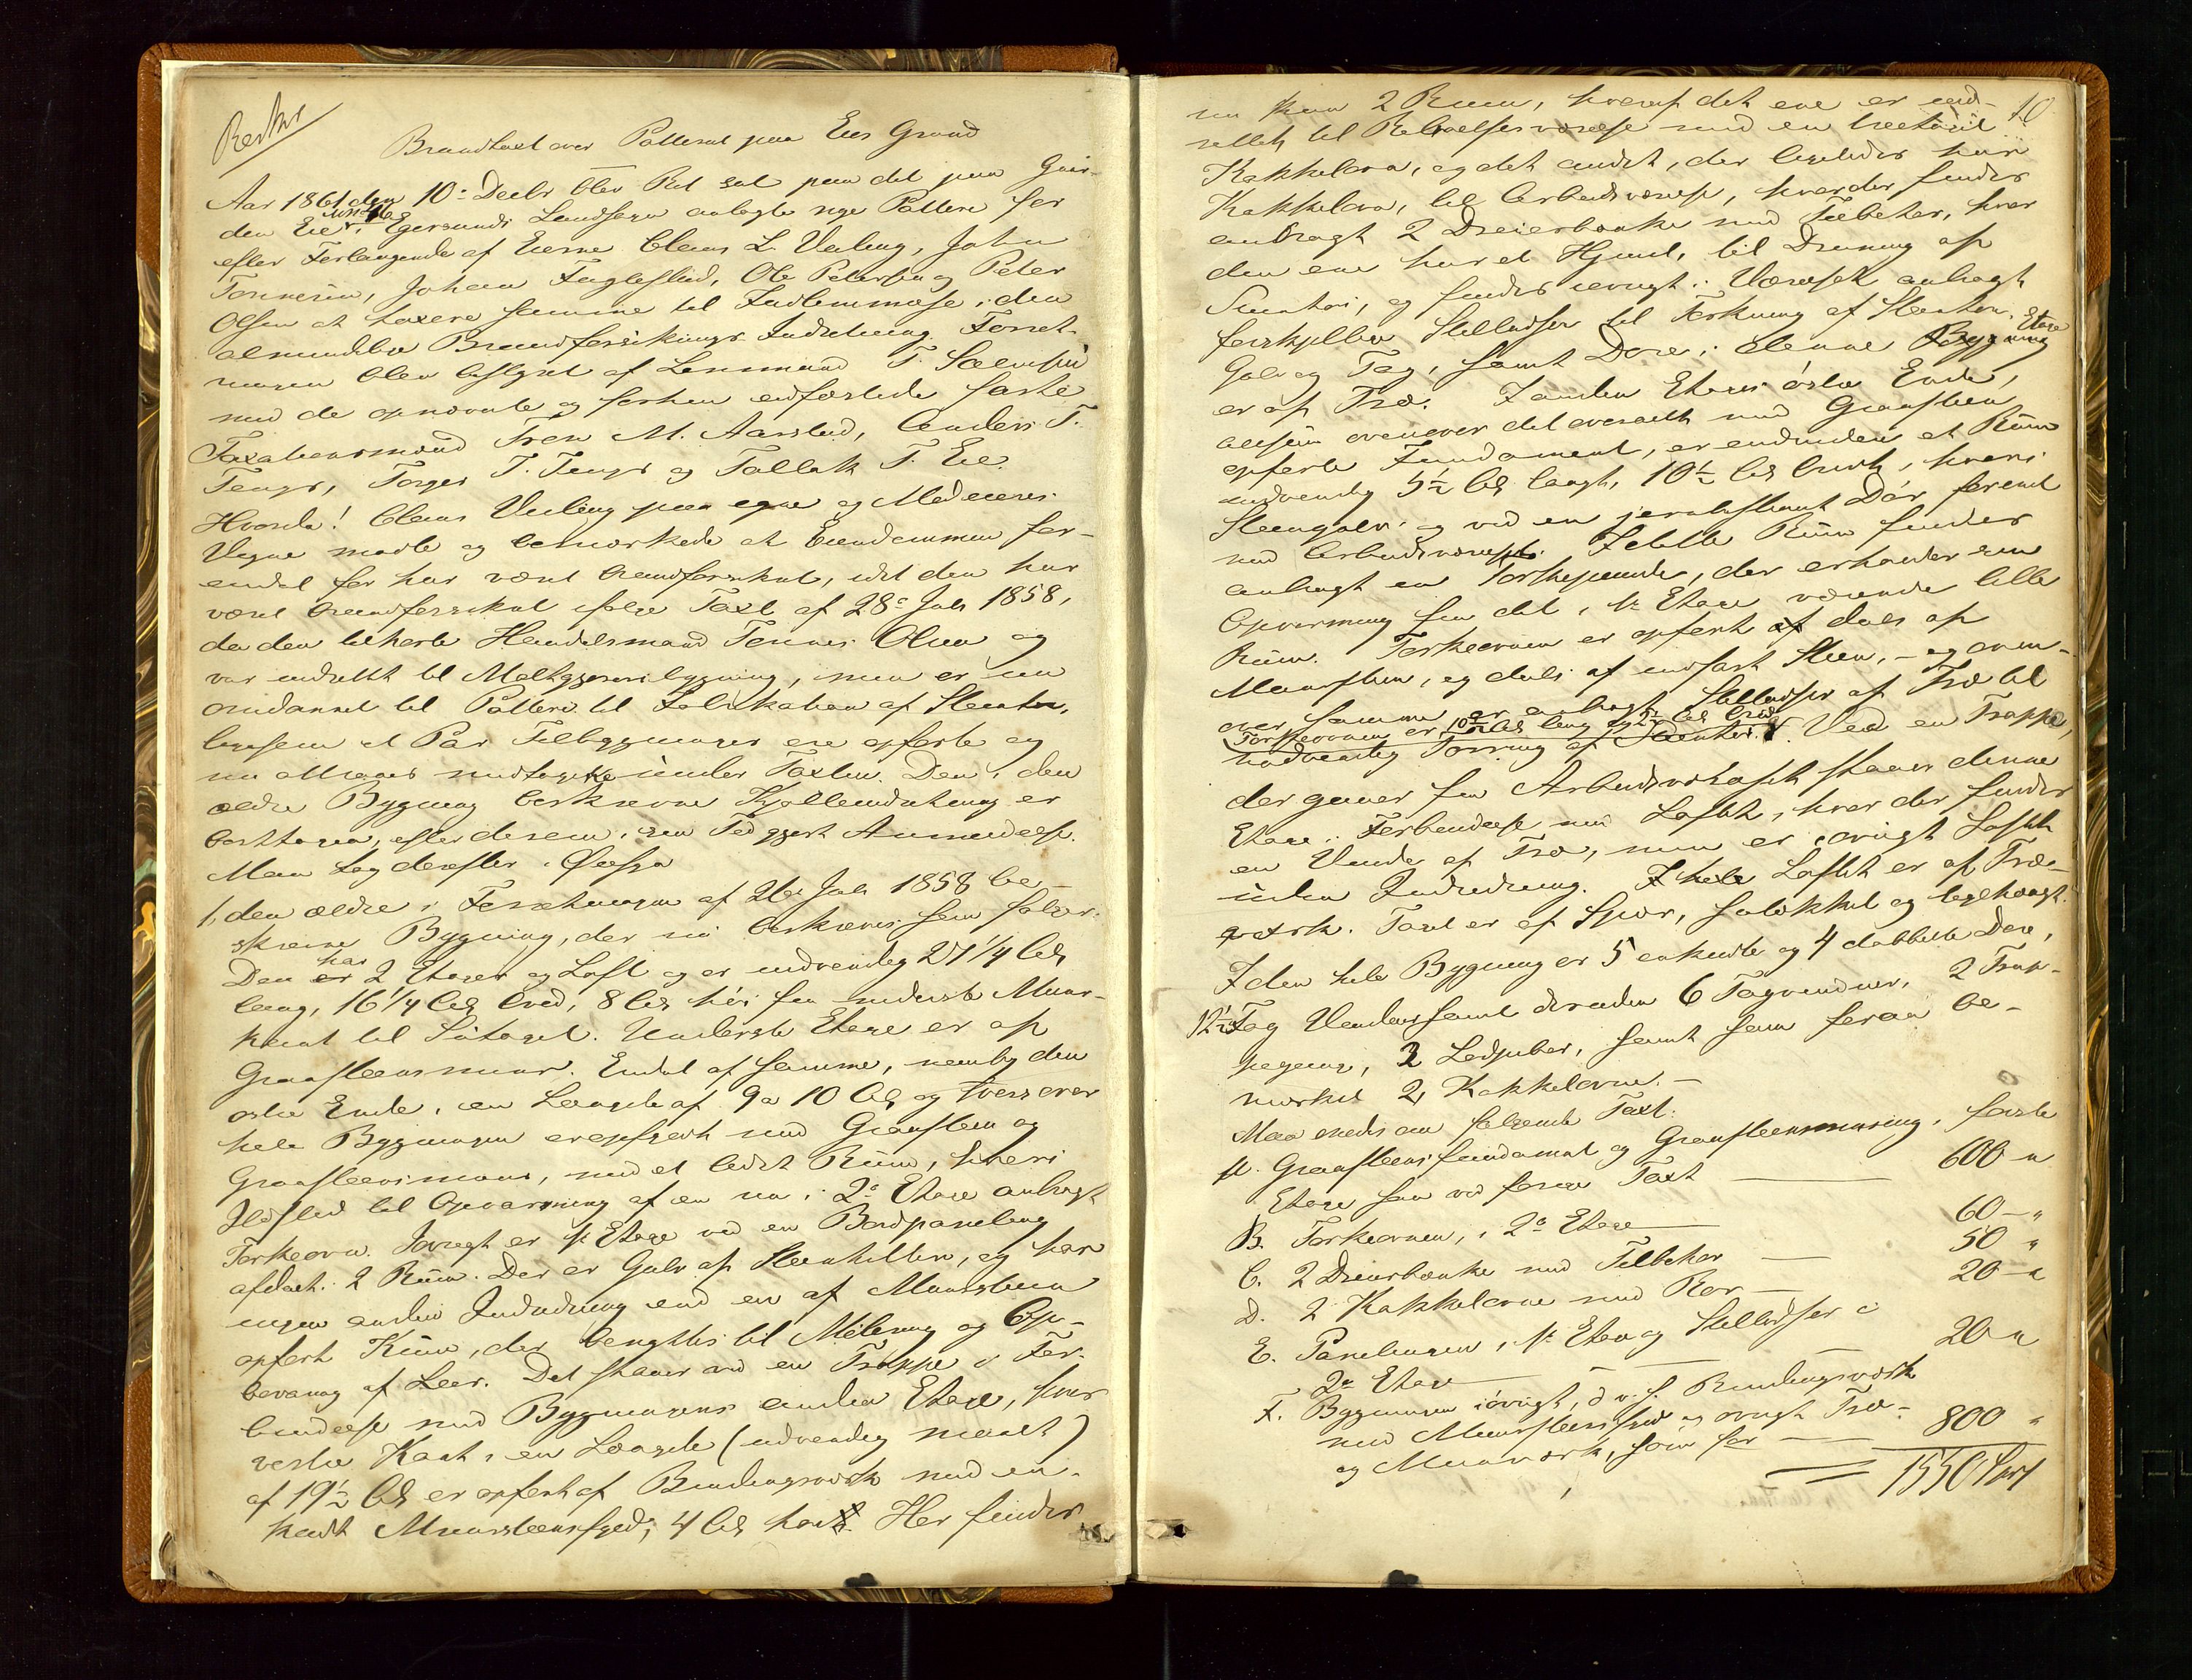 Brandtaxt over Potteriet paa Eies Grund
Aar 1861 den 10de Decbr blev Ret sat paa det paa Gaar-
den Eie i Egersunds Landsogn anlagte nye Potteri for
efter Forlangende af Eierne Claus L. Ueling, John
Tonnesen, Johan Fuglestad, Ole Petersen og Peter
Olsen at taxere samme til Indlemmelse i den
almindelige Brandforsikrings Indretning. Forret-
ningen blev bestyret af Lensmand T. Salvesen
med de opnævnte og forhen edfæstede faste
Taxationsmænd Sven M. Aarstad, Anders T.
Tengs, Torger T. Tengs og Tollak T. Eie.
Hvorda! Claus Ueling paa egne og Medeieres
Vegne mødte og bemærkede at Eiendommen for-
endel før har været brandforsikret, idet den har
været brandforsikret ifølge Taxt af 28de Juli 1858,
da den tilhørte Handelsmand Tonnes Olsen og
var indrettet til Maltgjøreribygning, men er nu
omdannet til Potteri til Fabrikation af Steentøi,
ligesom et Par Tilbygninger ere opførte og
nu attraaes medtagne under Taxten. Den i den
ældre Bygning beskrevne Kjølleindretning er
borttagen, efter derom igen Tid gjort Anmeldelse.
Man tog derefter i Øiesyn
1, den ældre i Forretningen af 28de Juli 1858 be-
skrevne Bygning, der nu beskrives som følger:
Den har 2 Etager og Loft og er udvendig 27 1/4 Al.
lang, 16 1/4 Al. bred, 8 Al. høi fra nederste Muur-
kant til Sutaget. Underste Etage er af
Graasteensmuur. Endel af samme, nemlig den
østre Ende, i en Længde af 9 a 10 Al. og tvers over
hele Bygningen er opført med Graasteen og
Graasteensmuur, med et lidet Rum, hvori
Ildsted til Opvarming af en nu i 2de Etage anbragt
Tørkeovn. Iøvrigt er 1ste Etage ved en Bordpaneling
afdelt i 2 Rum. Der er Gulv af Steenheller, og har
ingen anden Indretning end en af Muursteen
opført Kum, der benyttes til Meling og Op-
bevaring af Leer. Det staaer ved en Trappe i For-
bindelse med Bygningens anden Etage, hvis
vestre Kant i en Længde (udvendig maalt)
af 19½ Al. er opført af Bindingsværk med en-
kelt Muursteensfyld, 4 Al. høit. Her findes
10
nu kun 2 Rum, hvoraf det ene er ind-
rettet til Beboelsesværelse med en toetages
Kakkelovn, og det andet, der ligeledes har
Kakkelovn, til Arbeidsværelse, hvor der findes
anbragt 2 Dreierbænke med Tilbehør, hvor
den ene har et Hjuul, til Dreining af
Steentøi, og findes iøvrigt i Værelset anbragt
forskjellige Stilladser til Tørkning af Steentøi.
Gulv og Tag, samt Døre i denne Etage
er af Træ. I anden Etages østre Ende,
altsaa ovenover det ovenanførte med Graasteen
opførte Fundament, er endvidere et Rum
indvendig 5½ Al. langt, 10½ Al. bredt, hvori
Steengulv og ved en jernbeslaaet Dør forenet
med Arbeidsværelset. I dette Rum findes
anbragt en Tørkepande, der erholder sin
Opvarming fra det i 1ste Etage værende lille
Rum. Tørkeovnen er opført deels af
Muursteen, og deels af ildfast Steen, – og oven-
over samme er anbragt Stilladser af Træ til
Tørkeovnen er 10½ Al. lang og 2½ Al. bred
nødvendig Tørring af Steentøi. Ved en Trappe,
der gaaer fra Arbeidsværelset staaer denne
Etage i Forbindelse med Loftet, hvor der findes
en Vinde af Træ, men er iøvrigt Loftet
uden Indredning. Hele Loftet er af Træ-
værk. Taget er af Sper, Sutokkel og teglhængt.
I den hele Bygning er 5 enkelte og 4 dobbelte Døre,
12½ Fag Vinduer samt desuden 6 Tagvinduer, 2 Trap-
pegange, 2 Ledpiber, samt som foran be-
mærket 2 Kakkelovne. –
Man enedes om følgende Taxt:
A. Graasteensfundament og Graasteensmuring i første
Etage som ved forrige Taxt — 600 „
B. Tørkeovnen, i 2de Etage — 60 – „
C. 2 Dreierbænke med Tilbehør — 50 „
D. 2 Kakkelovne med Rør — 20 – „
E. Panelingen i 1ste Etage og Stilladser i
2den Etage — 20 „
F. Bygningen iøvrigt, d. v. s. Bindingsværk
med Muursteensfyld og øvrigt Træ-
og Muurværk, som før — 800 „
1550 Spd